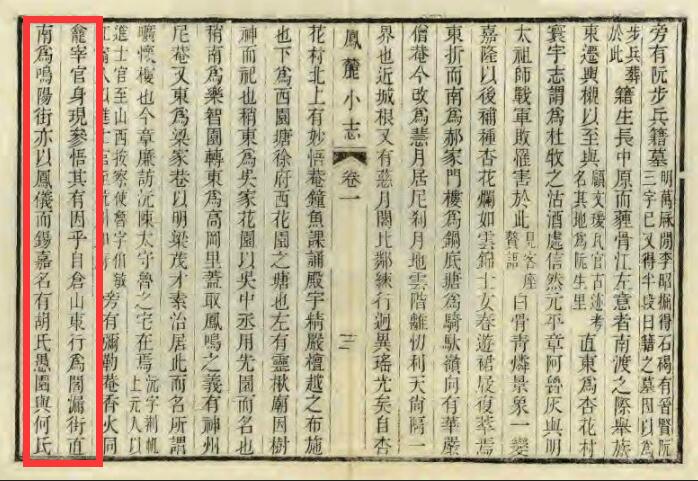 旁有阮步兵籍墓明萬厤閒李昭掘得石碣有晉賢阮
三字已又得半段曰籍之墓因以為
步兵葬籍生長中原而薶骨江左意者南渡之際舉族
於此
東遷輿櫬以至與顧文瑗瓦官古迹考
名其地為阮生里直東為杏花村
寰宇志謂為杜牧之沽酒處信然元平章阿魯灰與明
太祖師戰軍敗罹害於此見客座
贅語白骨青燐景象一變
嘉隆以後補種杏花爛如雲錦士女春遊裙屐復萃焉
東折而南為郝家門樓為鍋底塘為騎馱嶺向有華嚴
僧菴今改為慧月居尼刹月地雲階離忉利天尙隔一
界也近城根又有慧月閣比鄰練行迥異瑤光矣自杏
鳳麓小志 卷一 三
花村北上有妙悟菴鐘魚課誦殿宇精嚴檀越之布施
也下為西園塘徐府西花園之塘也左有靈楸廟因樹
神而祀也稍東為吳家花園以吳中丞用先園而名也
稍南為樂智園轉東為高岡里蓋取鳳鳴之義有神州
尼菴又東為梁家巷以明梁茂才素治居此而名所謂
曠懷樓也今章廉訪沅陳太守魯之宅在焉沅字荊帆
上元人以
進士官至山西按察使魯字伯敏
江甯人以進士官至旁有彌勒菴香火同
龕宰官身現參悟其有因乎自倉山東行為閙漏街直
南為鳴陽街亦以鳳儀而錫嘉名有胡氏愚園與何氏